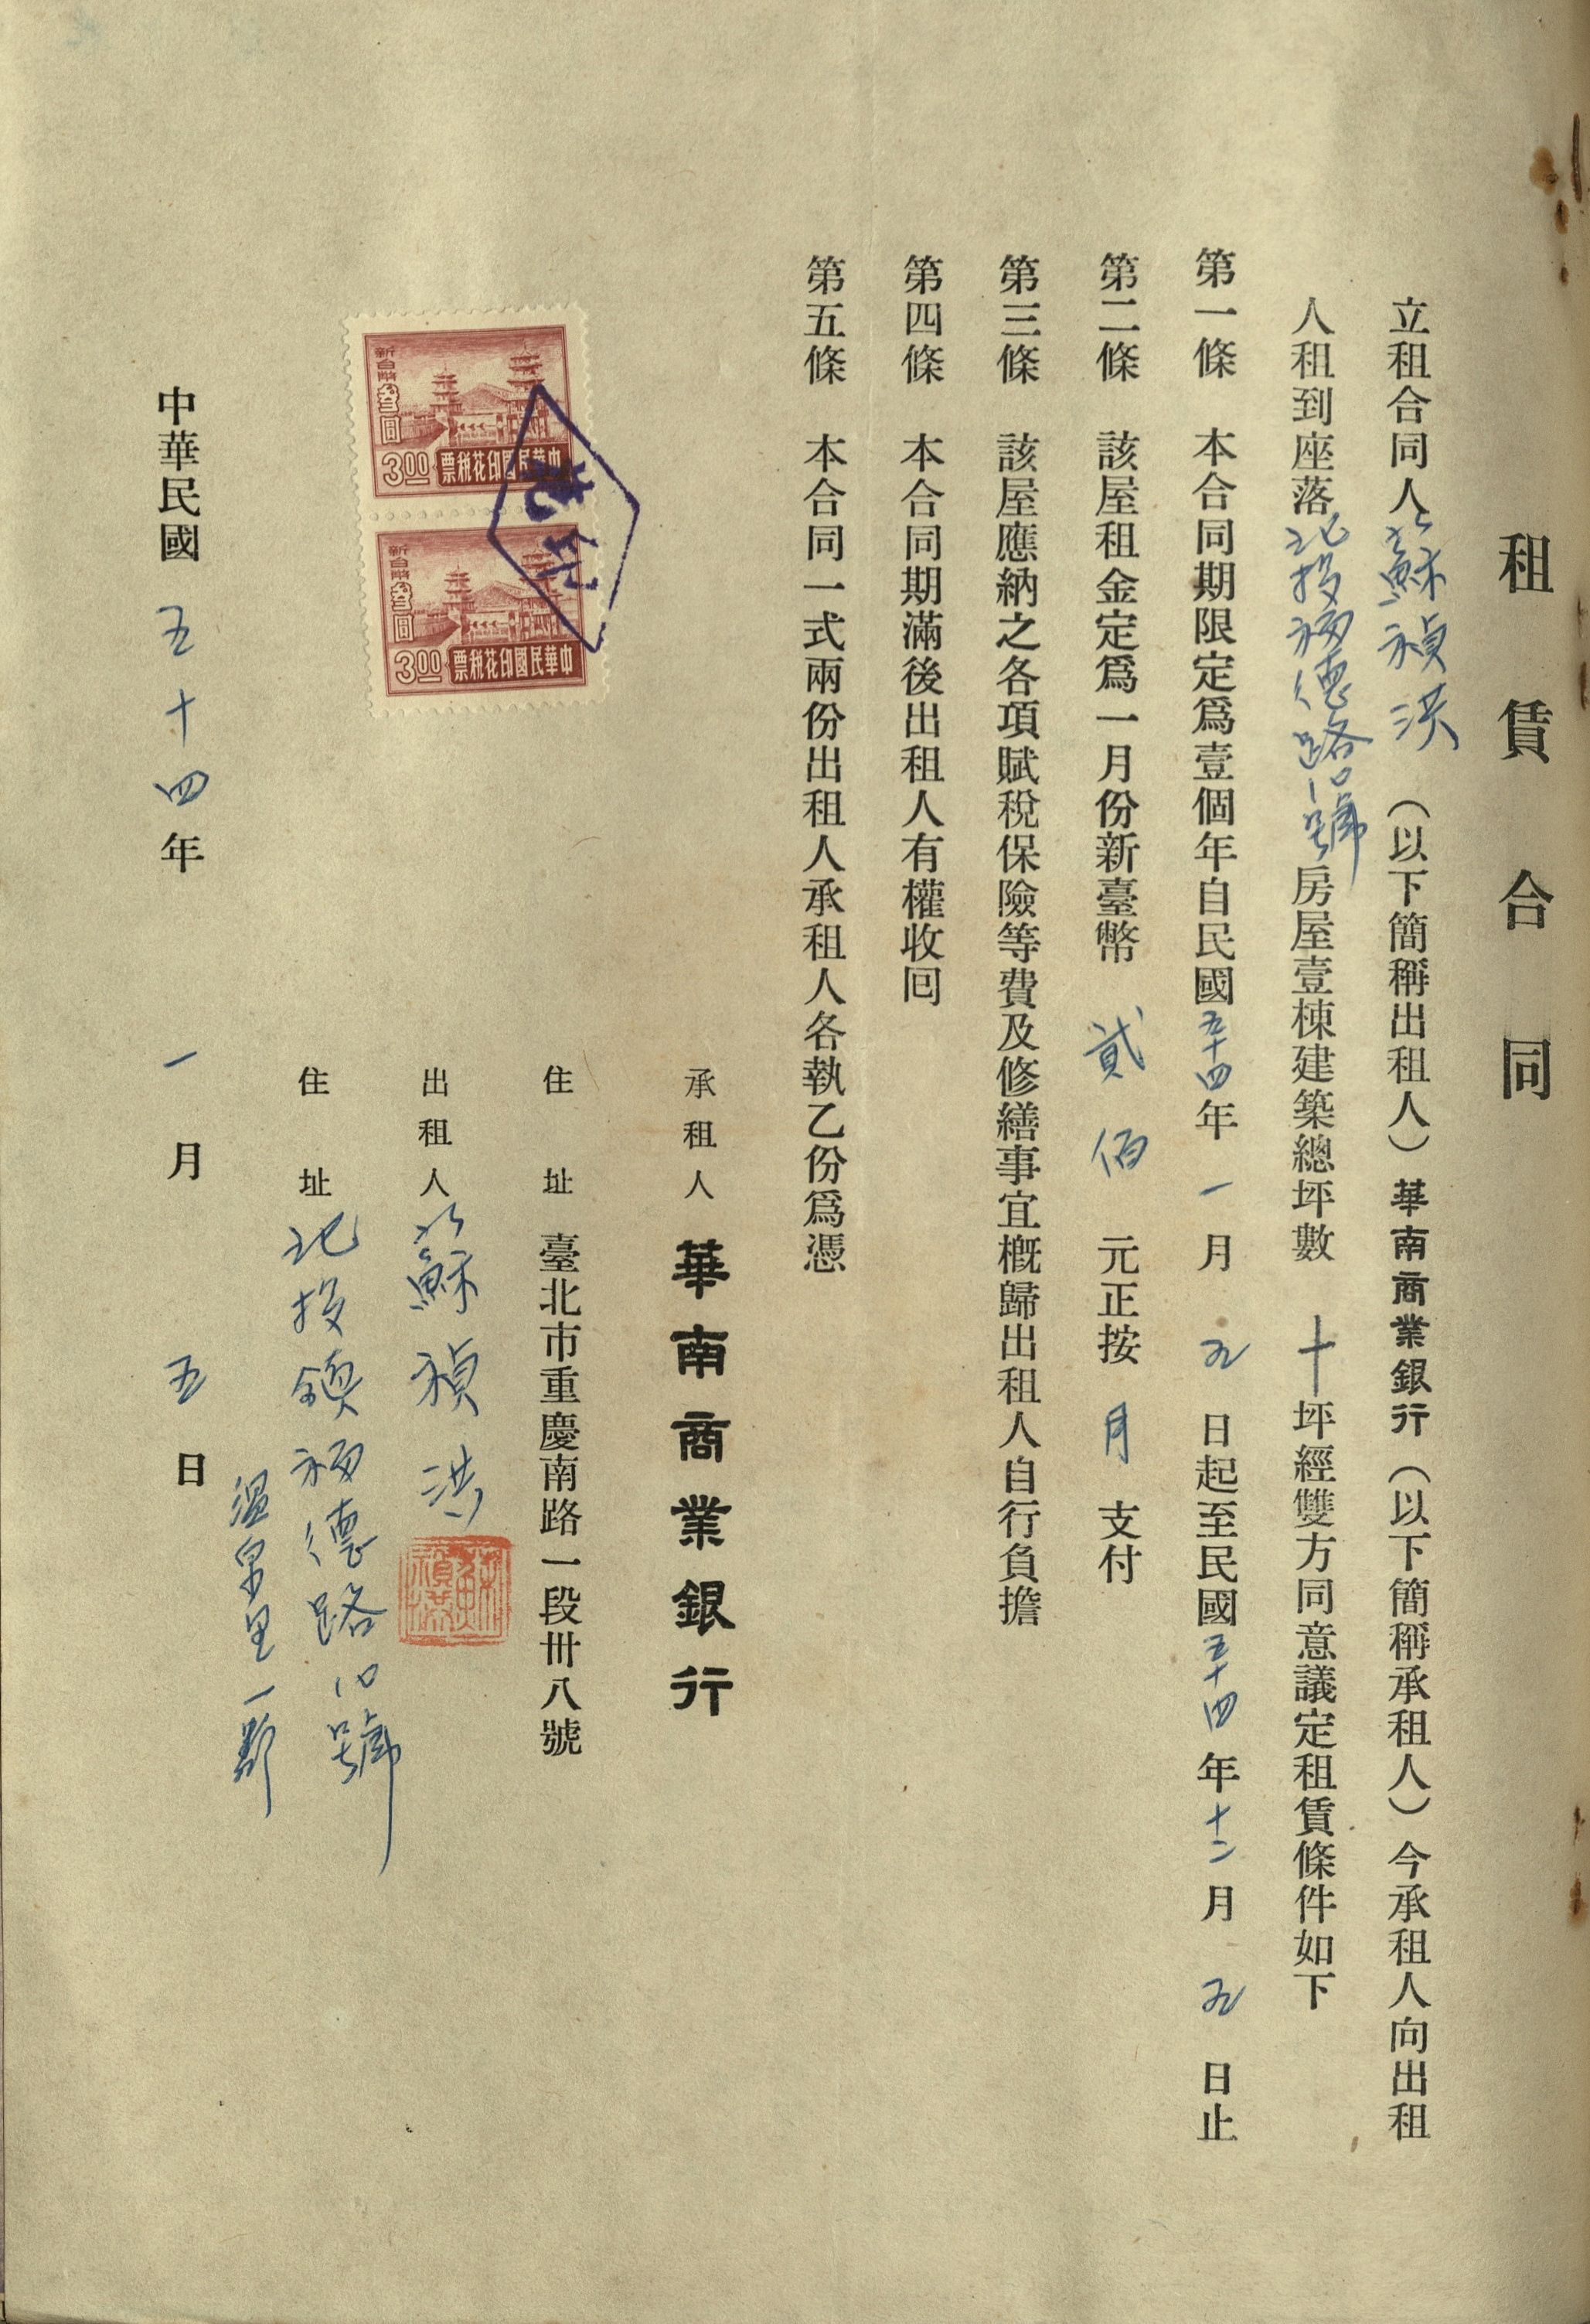 租賃合同
立租合同人蘇禎洪（以下簡稱出租人）華南商業銀行（以下簡稱承租人）今承租人向出租
人租到座落北投福德路10號房屋壹棟建築總坪數十坪經雙方同意議定租賃條件如下
第一條　本合同期限定爲壹個年自民國五十四年一月五日起至民國五十四年十二月五日止
第二條　該屋租金定爲一月份新臺幣貳佰元正按月支付
第三條　該屋應納之各項賦稅保險等費及修繕事宜概歸出租人自行負擔
第四條　本合同期滿後出租人有權收囘
第五條　本合同一式兩份出租人承租人各執乙份爲憑
承租人　華南商業銀行
住址　臺北市重慶南路一段卅八號
出租人　蘇禎洪
蘇禎洪
住址　北投鎮福德路10號
溫泉里一鄰
新台幣叁圓
3.00
中華民國印花稅票
新台幣叁圓
3.00
中華民國印花稅票
中華民國五十四年一月五日